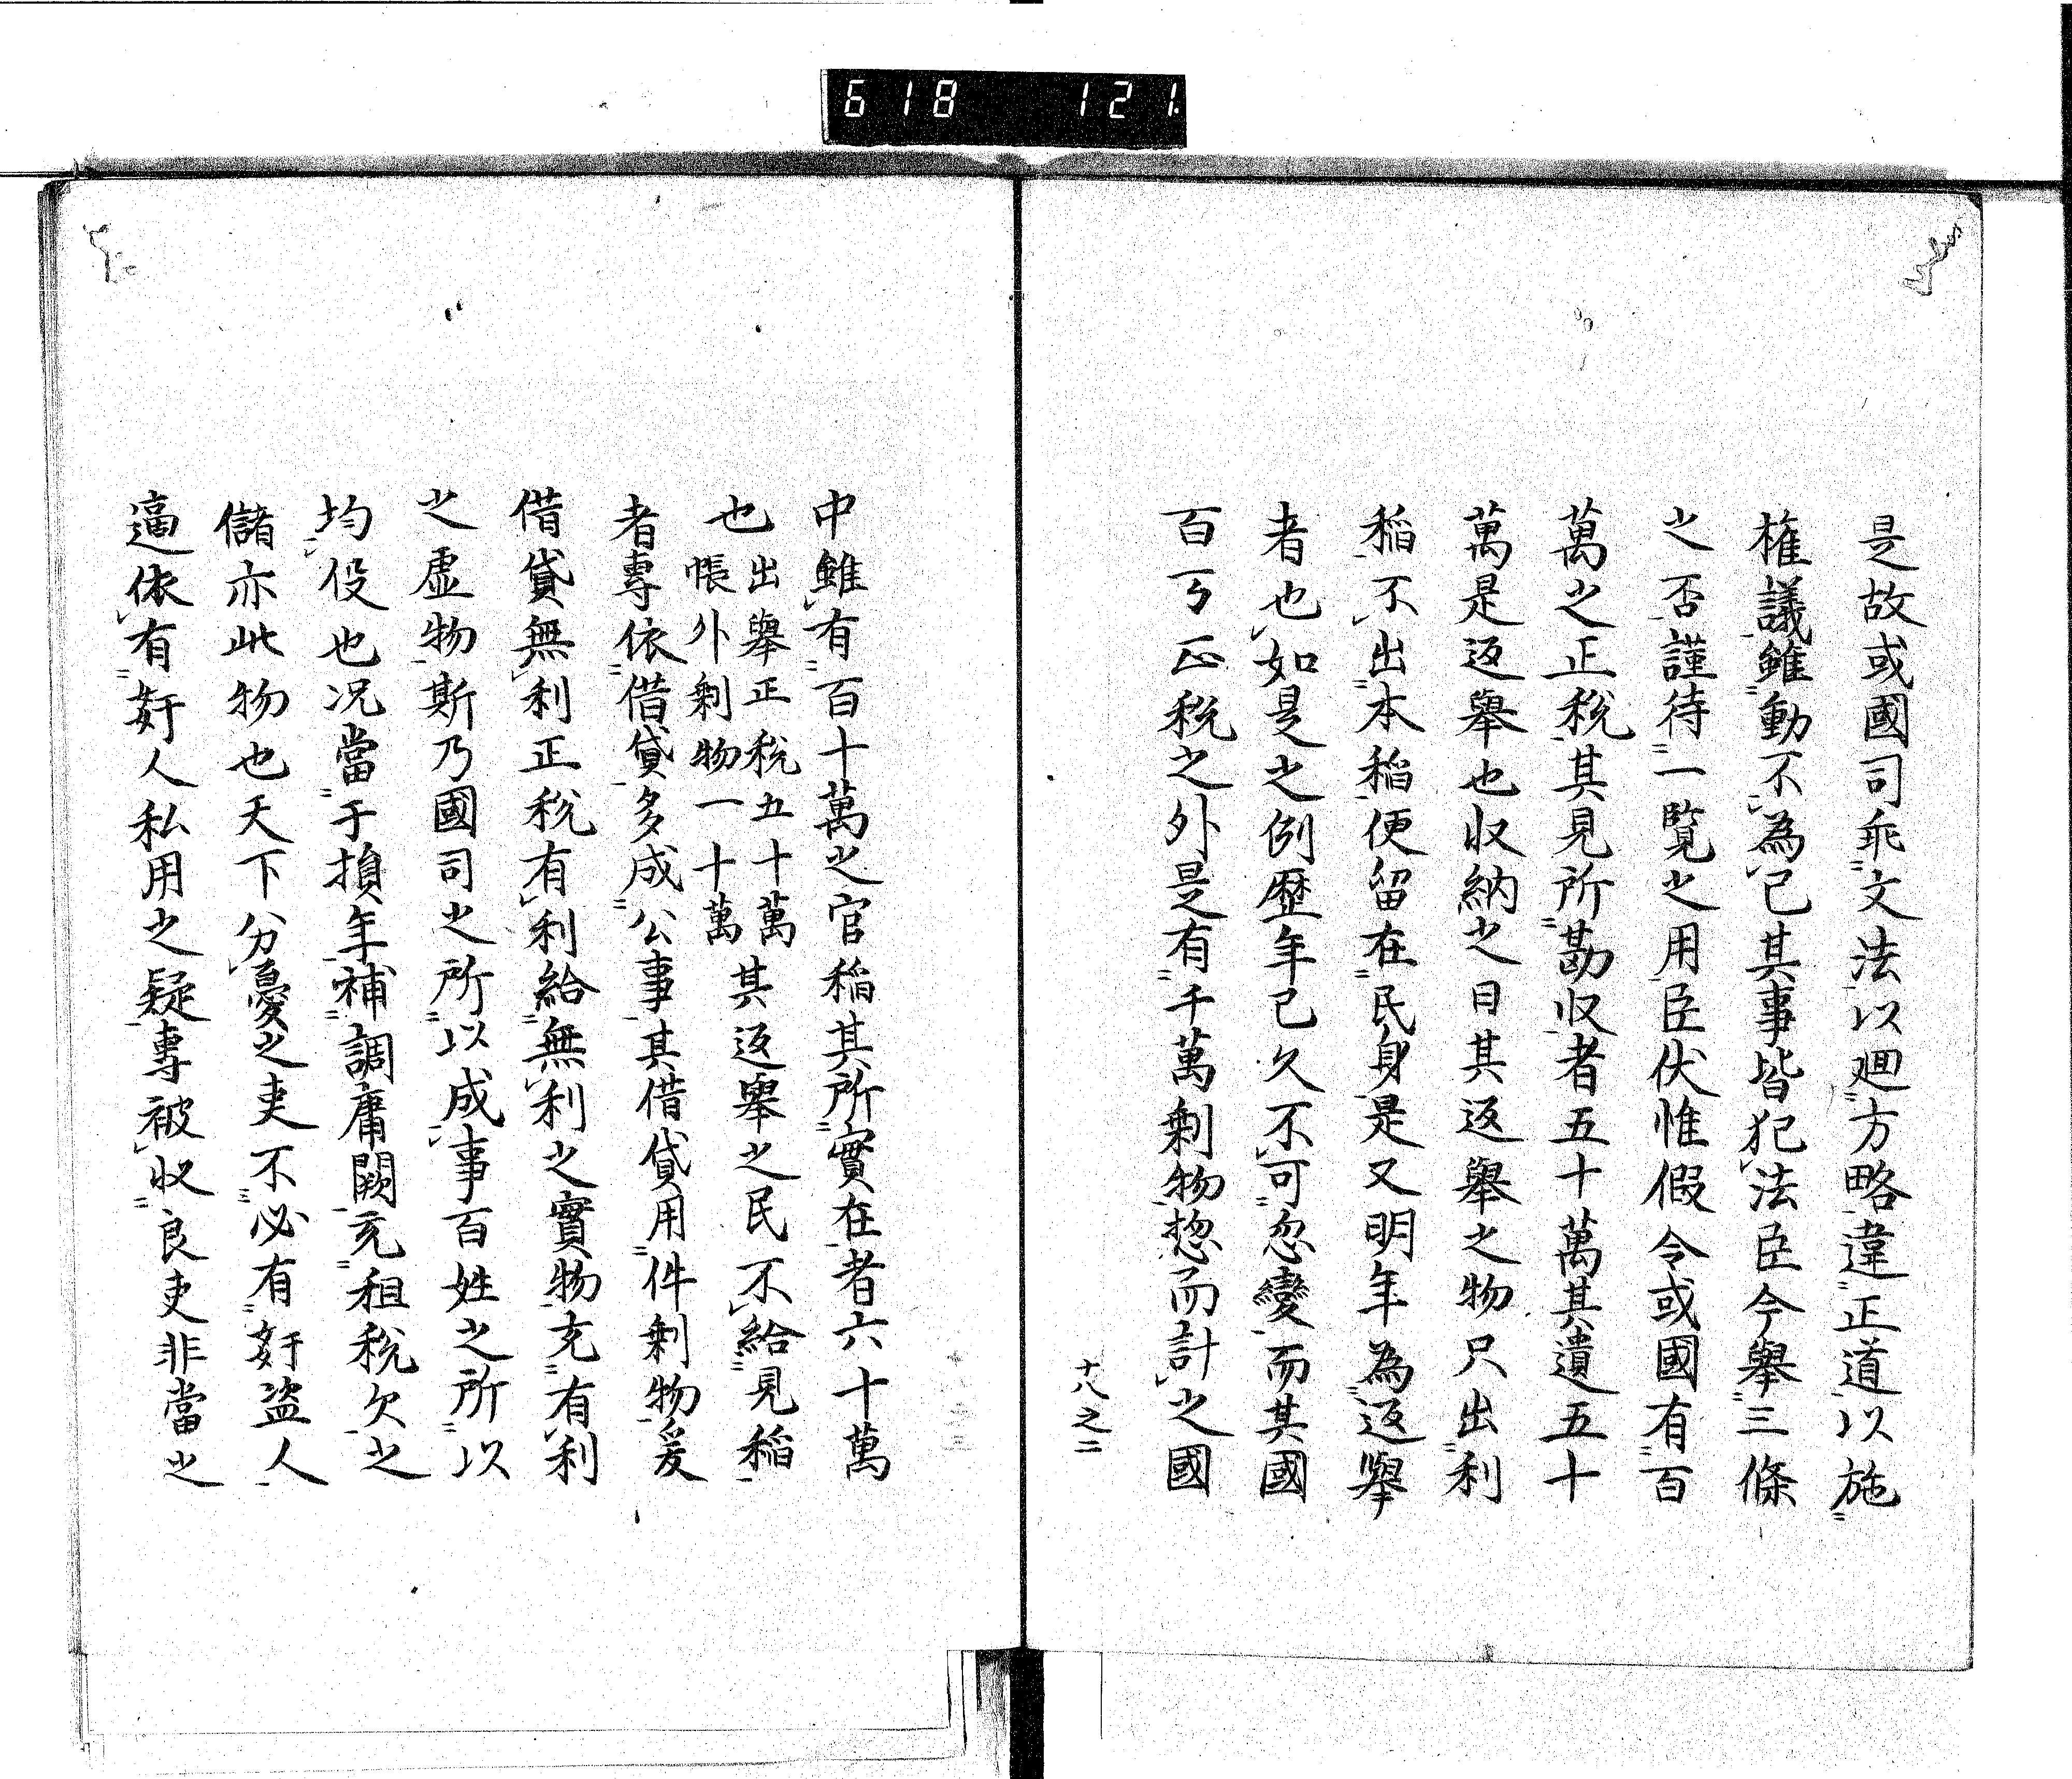 618 121
是故或國司乖文法以廻方略違正道以施
權議雖動不為己其事皆犯法臣今舉三條
之否謹待一覽之用臣伏惟假令或國有百
萬之正税其見所勘収者五十萬其遺五十
萬是返舉也収納之日其返舉之物只出利
稲不出本稲便留在民身是又明年為返舉
者也如是之例歴年已久不可忽變而其國
百万正税之外是有千萬剰物惣而計之國
十八之二
中雖有百十萬之官稲其所實在者六十萬
也出舉正税五十萬帳外剰物一十萬其返舉之民不給見稲
者專依借貸多成公事其借貸用件剰物爰
借貸無利正税有利給無利之實物充有利
之虚物斯乃國司之所以成事百姓之所以
均役也況當于損年補調庸闕充租税欠之
儲亦此物也天下分憂之吏不必有姧盗人
逼依有姧人私用之疑專被収良吏非當之